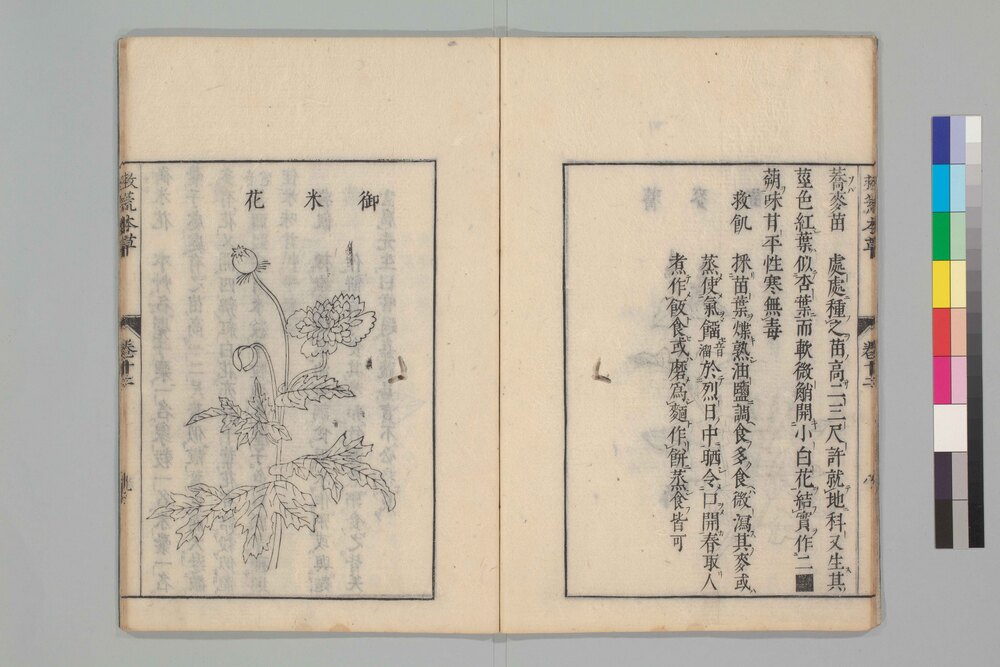 蕎麥苗　處處種之苗高二三尺許就地科叉生其
莖色紅葉似杏葉而軟微艄開小白花結實作三
蒴味甘平性寒無毒
救飢　採苗葉煠熟油鹽調食多食微瀉其麥或
蒸使氣餾音溜於烈日中晒令口開舂取人
煮作飯食或磨爲麵作餅蒸食皆可
救荒本草
卷十二
御米花
救荒本草
卷十二